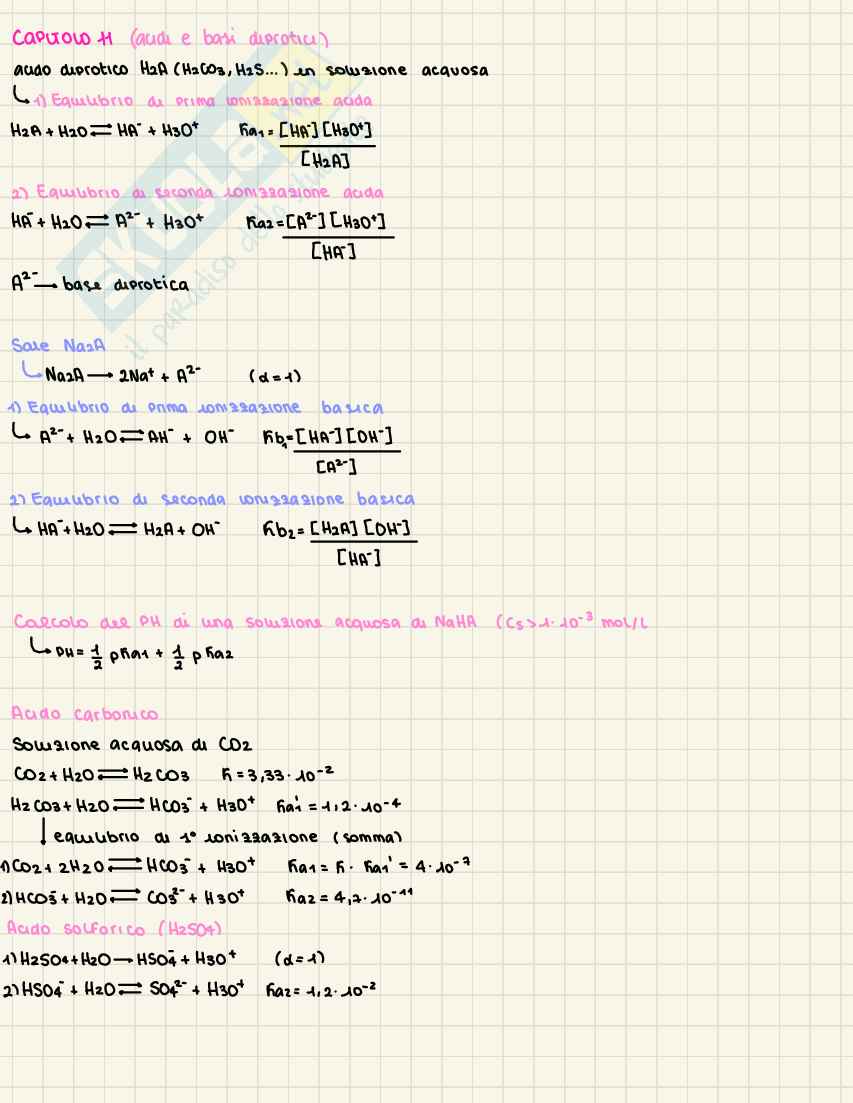 CAPITOLO 11 (acidi e basi diprotici)
acido diprotico H2A (H2CO3, H2S...) in soluzione acquosa
1) Equilibrio di prima ionizzazione acida
H2A + H2O ⇌ HA⁻ + H3O⁺ Ka1 = [HA⁻][H3O⁺]
[H2A]
2) Equilibrio di seconda ionizzazione acida
HA⁻ + H2O ⇌ A²⁻ + H3O⁺ Ka2 = [A²⁻][H3O⁺]
[HA⁻]
A²⁻ → base diprotica
Sale Na2A
Na2A → 2Na⁺ + A²⁻ (α=1)
1) Equilibrio di prima ionizzazione basica
A²⁻ + H2O ⇌ AH⁻ + OH⁻ Kb1 = [HA⁻][OH⁻]
[A²⁻]
2) Equilibrio di seconda ionizzazione basica
HA⁻ + H2O ⇌ H2A + OH⁻ Kb2 = [H2A][OH⁻]
[HA⁻]
Calcolo del PH di una soluzione acquosa di NaHA (Cs > 1·10⁻³ mol/L
PH = 1/2 pKa1 + 1/2 pKa2
Acido carbonico
Soluzione acquosa di CO2
CO2 + H2O ⇌ H2CO3 K = 3,33·10⁻²
H2CO3 + H2O ⇌ HCO3⁻ + H3O⁺ Ka1' = 1,2·10⁻⁴
equilibrio di 1° ionizzazione (somma)
1) CO2 + 2H2O ⇌ HCO3⁻ + H3O⁺ Ka1 = K · Ka1' = 4·10⁻⁷
2) HCO3⁻ + H2O ⇌ CO3²⁻ + H3O⁺ Ka2 = 4,7·10⁻¹¹
Acido solforico (H2SO4)
1) H2SO4 + H2O → HSO4⁻ + H3O⁺ (α=1)
2) HSO4⁻ + H2O ⇌ SO4²⁻ + H3O⁺ Ka2 = 1,2·10⁻²
SKUOLA.net
il paradiso dello studente